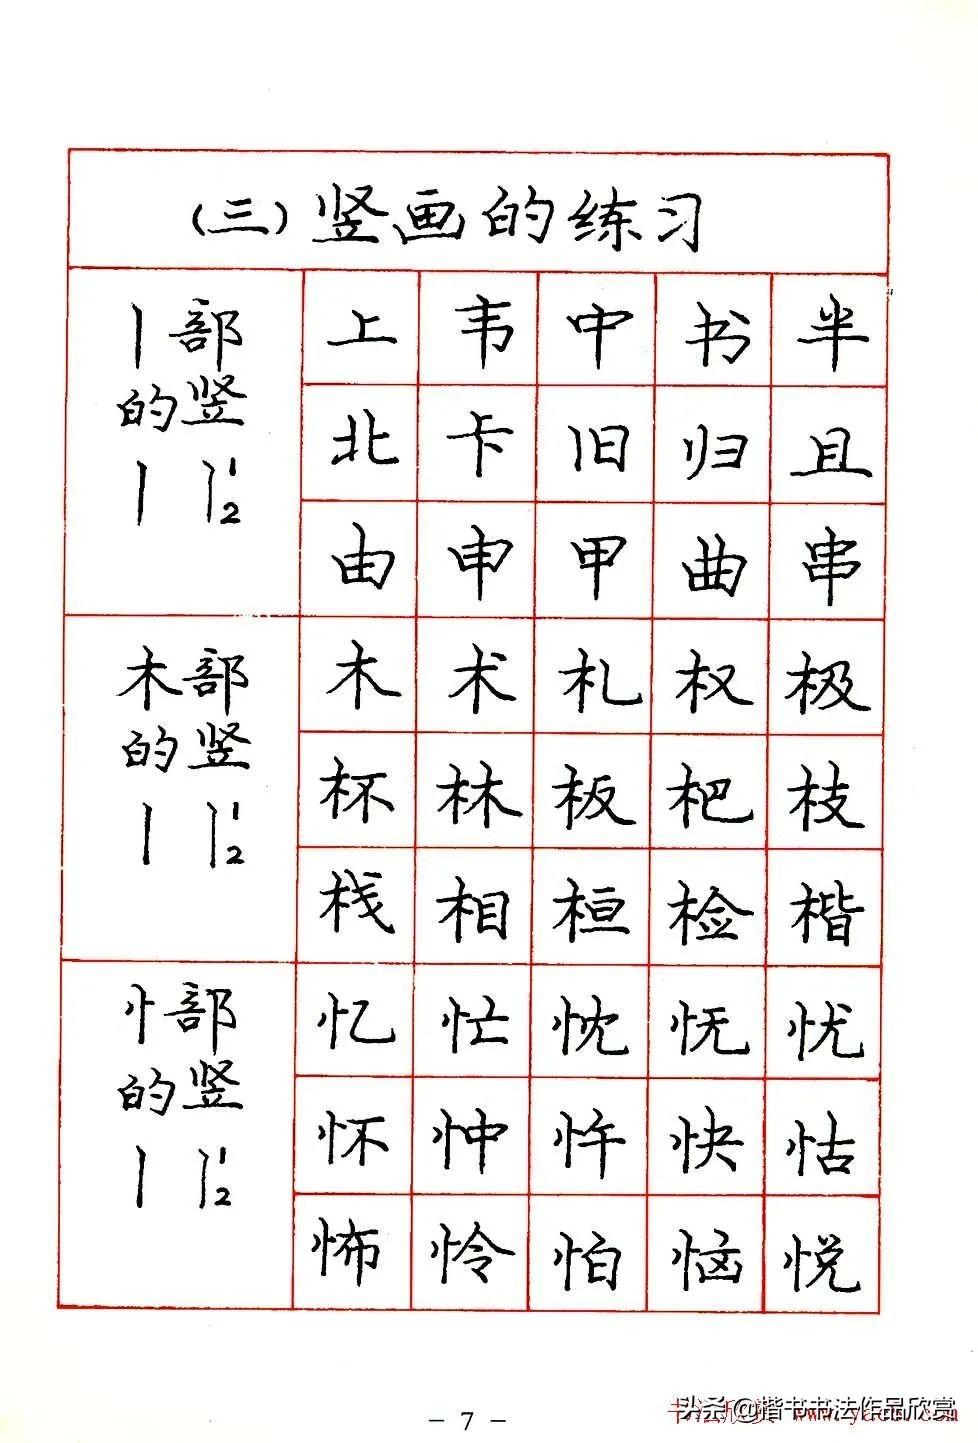 （三）竖画的练习
丨部
的竖
丨 丨1
2
上 韦 中 书 半
北 卡 旧 归 且
由 申 甲 曲 串
木部
的竖
丨 丨1
2
木 术 札 权 极
杯 林 板 杷 枝
栈 相 桓 检 楷
忄部
的竖
丨 丨1
2
忆 忙 忱 怃 忧
怀 忡 忤 快 怙
怖 怜 怕 恼 悦
– 7 –
头条@楷书书法作品欣赏